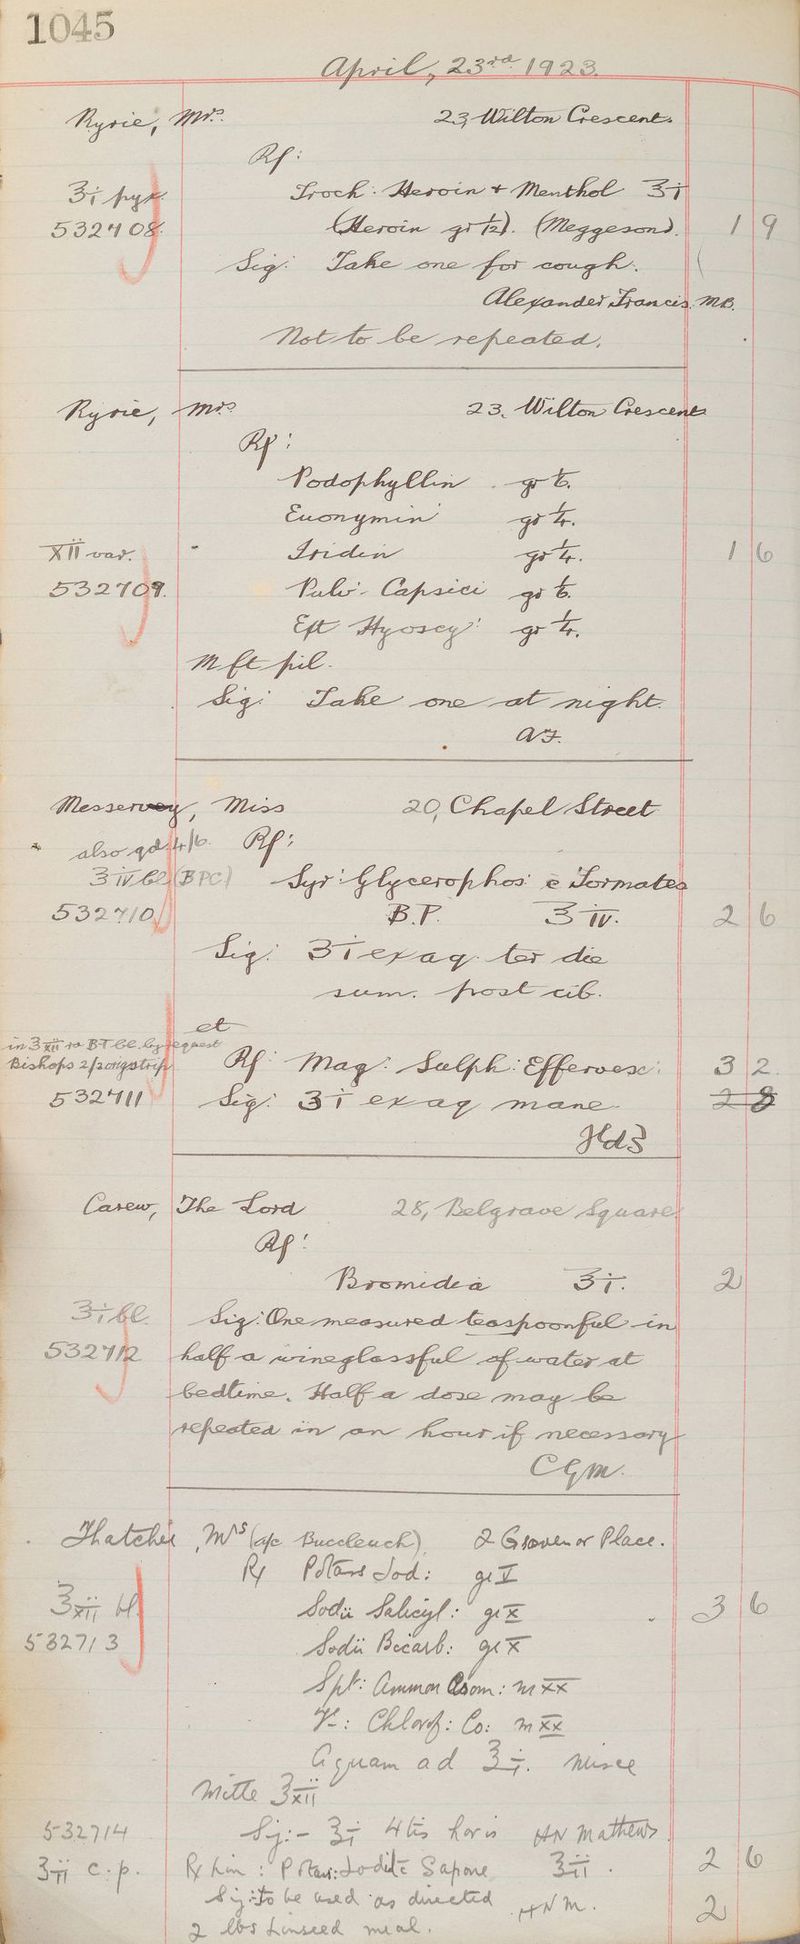 1045
April, 23rd 1923.
Ryrie, Mrs. 23, Wilton Crescent.
Rp:
ʒi pyx Troch: Heroin + Menthol ʒi
532708. (Heroin gr 1/12). (Meggeson). 1 9
Sig: Take one for cough.
Alexander Francis. M.B.
Not to be repeated.
Ryrie, Mrs 23, Wilton Crescent
Rp:
Podophyllin gr 1/6.
Euonymin gr 1/4.
XII var. Iridin gr 1/4. 1 6
532709. Pulv: Capsici gr 1/6.
Ext Hyoscy: gr 1/4.
M ft pil.
Sig: Take one at night.
A.F.
Messervy, Miss 20, Chapel Street
also qd 4/6. Rp:
ʒiv bl (BPC) Syr: Glycerophos: c Formates
532710 B.P. ʒiv. 2 6
Sig: ʒi ex aq. ter die
sum. post cib.
et
in ʒxii bl. by request
Bishops 2/ Rp: Mag: Sulph: Effervesc: 3 2
532711 Sig: ʒi ex aq mane 2 8
Carew, The Lord 28, Belgrave Square.
Rp:
Bromidia ʒi. 2
ʒi bl. Sig: One measured teaspoonful in
532712 half a wineglassful of water at
bedtime. Half a dose may be
repeated in an hour if necessary
C G M.
Thatcher, Mrs (a/c Buccleuch) 2 Grosvenor Place.
Rx Potass Iod: gr V
ʒxii bl. Sodii Salicyl: gr X 3 6
532713 Sodii Bicarb: gr X
Spt: Ammon Arom: m XX
Tr: Chlorof: Co: m XX
Aquam ad ʒi. Misce
Mitte ʒxii
532714 Sig:- ʒi 4tis horis HN Mathews.
ʒii c.p. Rx Lin: Potass: Iodi c Sapone ʒii. 2 6
Sig: to be used as directed HNM.
2 lbs Linseed meal. 2